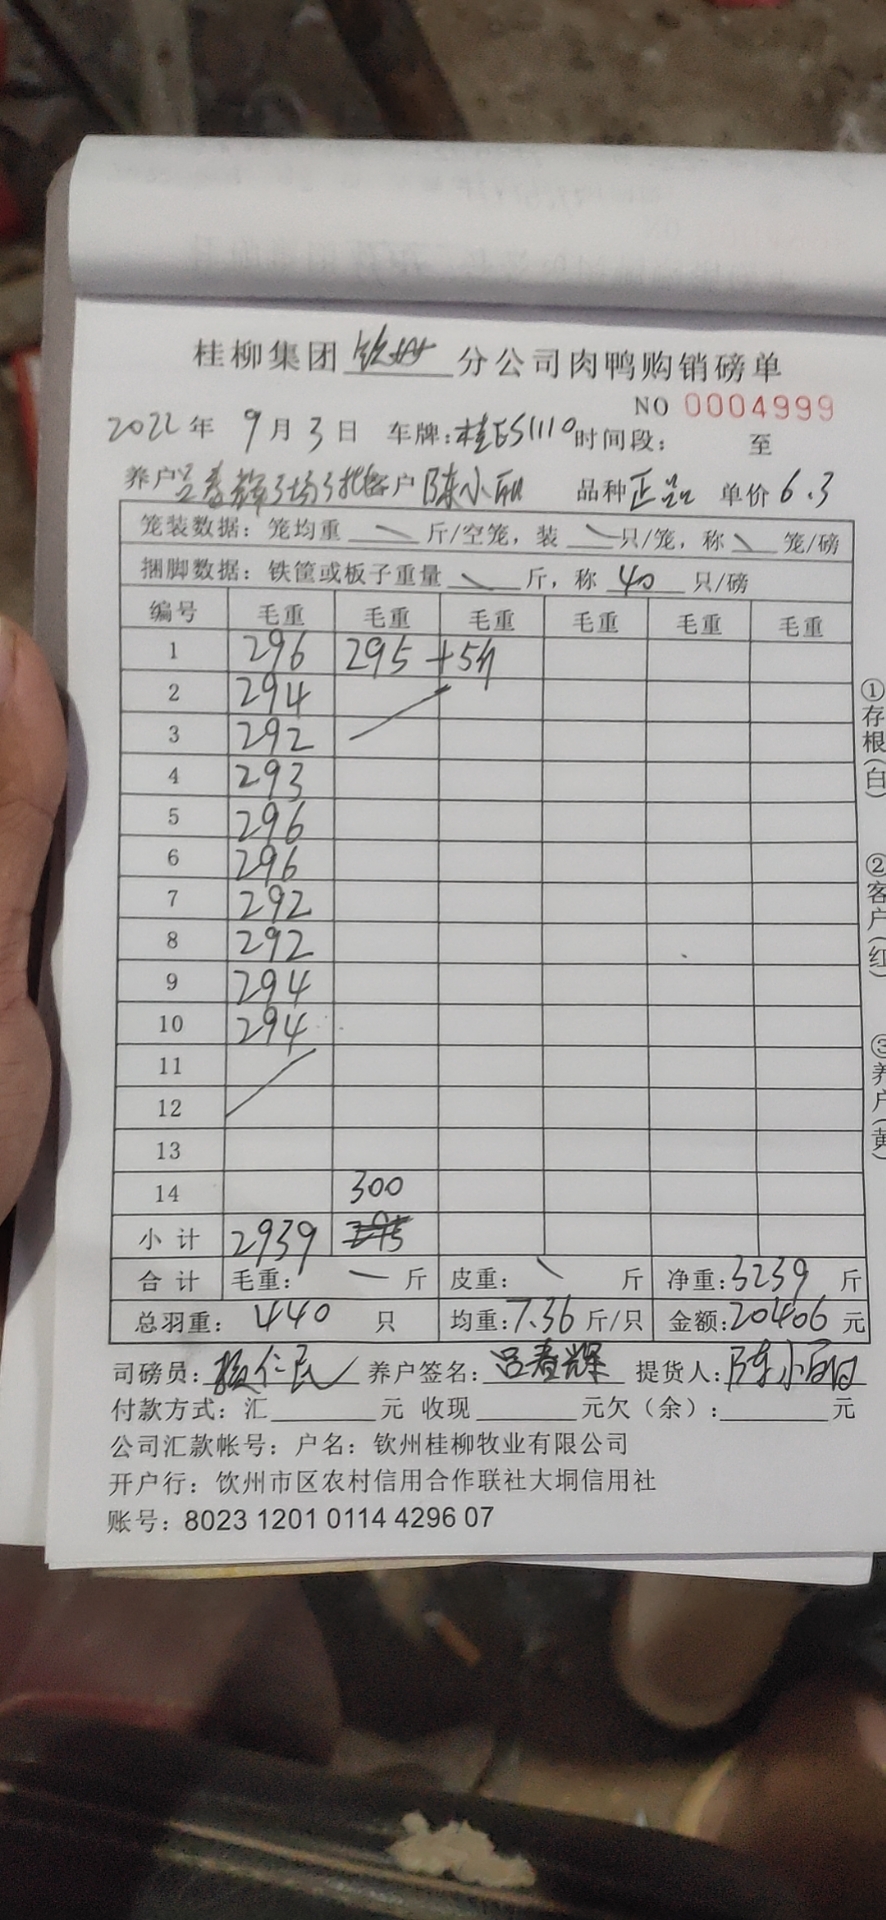 桂柳集团 钦州 分公司肉鸭购销磅单
NO 0004999
2022年 9月3日 车牌:桂ES1110 时间段: 至
养户 吕春辉3场3批 客户 陈小丽 品种 正品 单价 6.3
笼装数据: 笼均重 \ 斤/空笼, 装 \ 只/笼, 称 \ 笼/磅
捆脚数据: 铁筐或板子重量 \ 斤, 称 40 只/磅
编号 毛重 毛重 毛重 毛重 毛重 毛重
1 296 295 +5斤
2 294
3 292
4 293
5 296
6 296
7 292
8 292
9 294
10 294
11
12
13
14 300
小计 2939 295
合计 毛重: — 斤 皮重: \ 斤 净重: 3239 斤
总羽重: 440 只 均重: 7.36 斤/只 金额: 20406 元
司磅员: 仁民 养户签名: 吕春辉 提货人: 陈小丽
付款方式: 汇 元 收现 元欠(余): 元
公司汇款帐号: 户名: 钦州桂柳牧业有限公司
开户行: 饮州市区农村信用合作联社大垌信用社
账号: 8023 1201 0114 4296 07
①存根(白)
②客户(红)
③养户(黄)